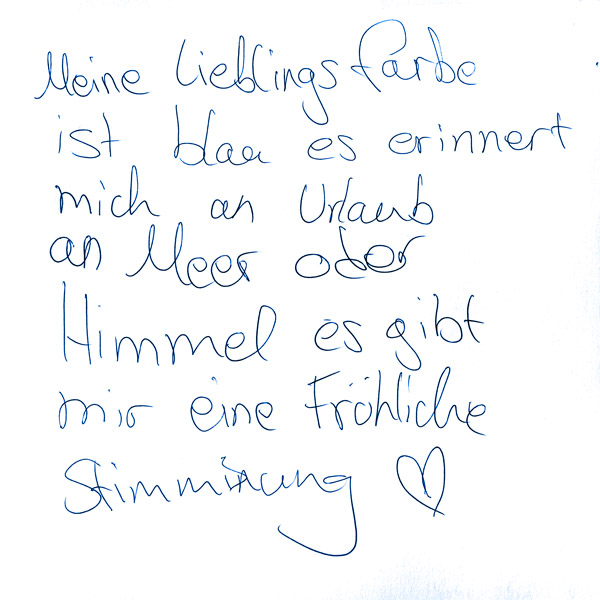 Meine Lieblings farbe
ist blau es erinnert
mich an Urlaub
an Meer oder
Himmel es gibt
mir eine Fröhliche
Stimmung ♡